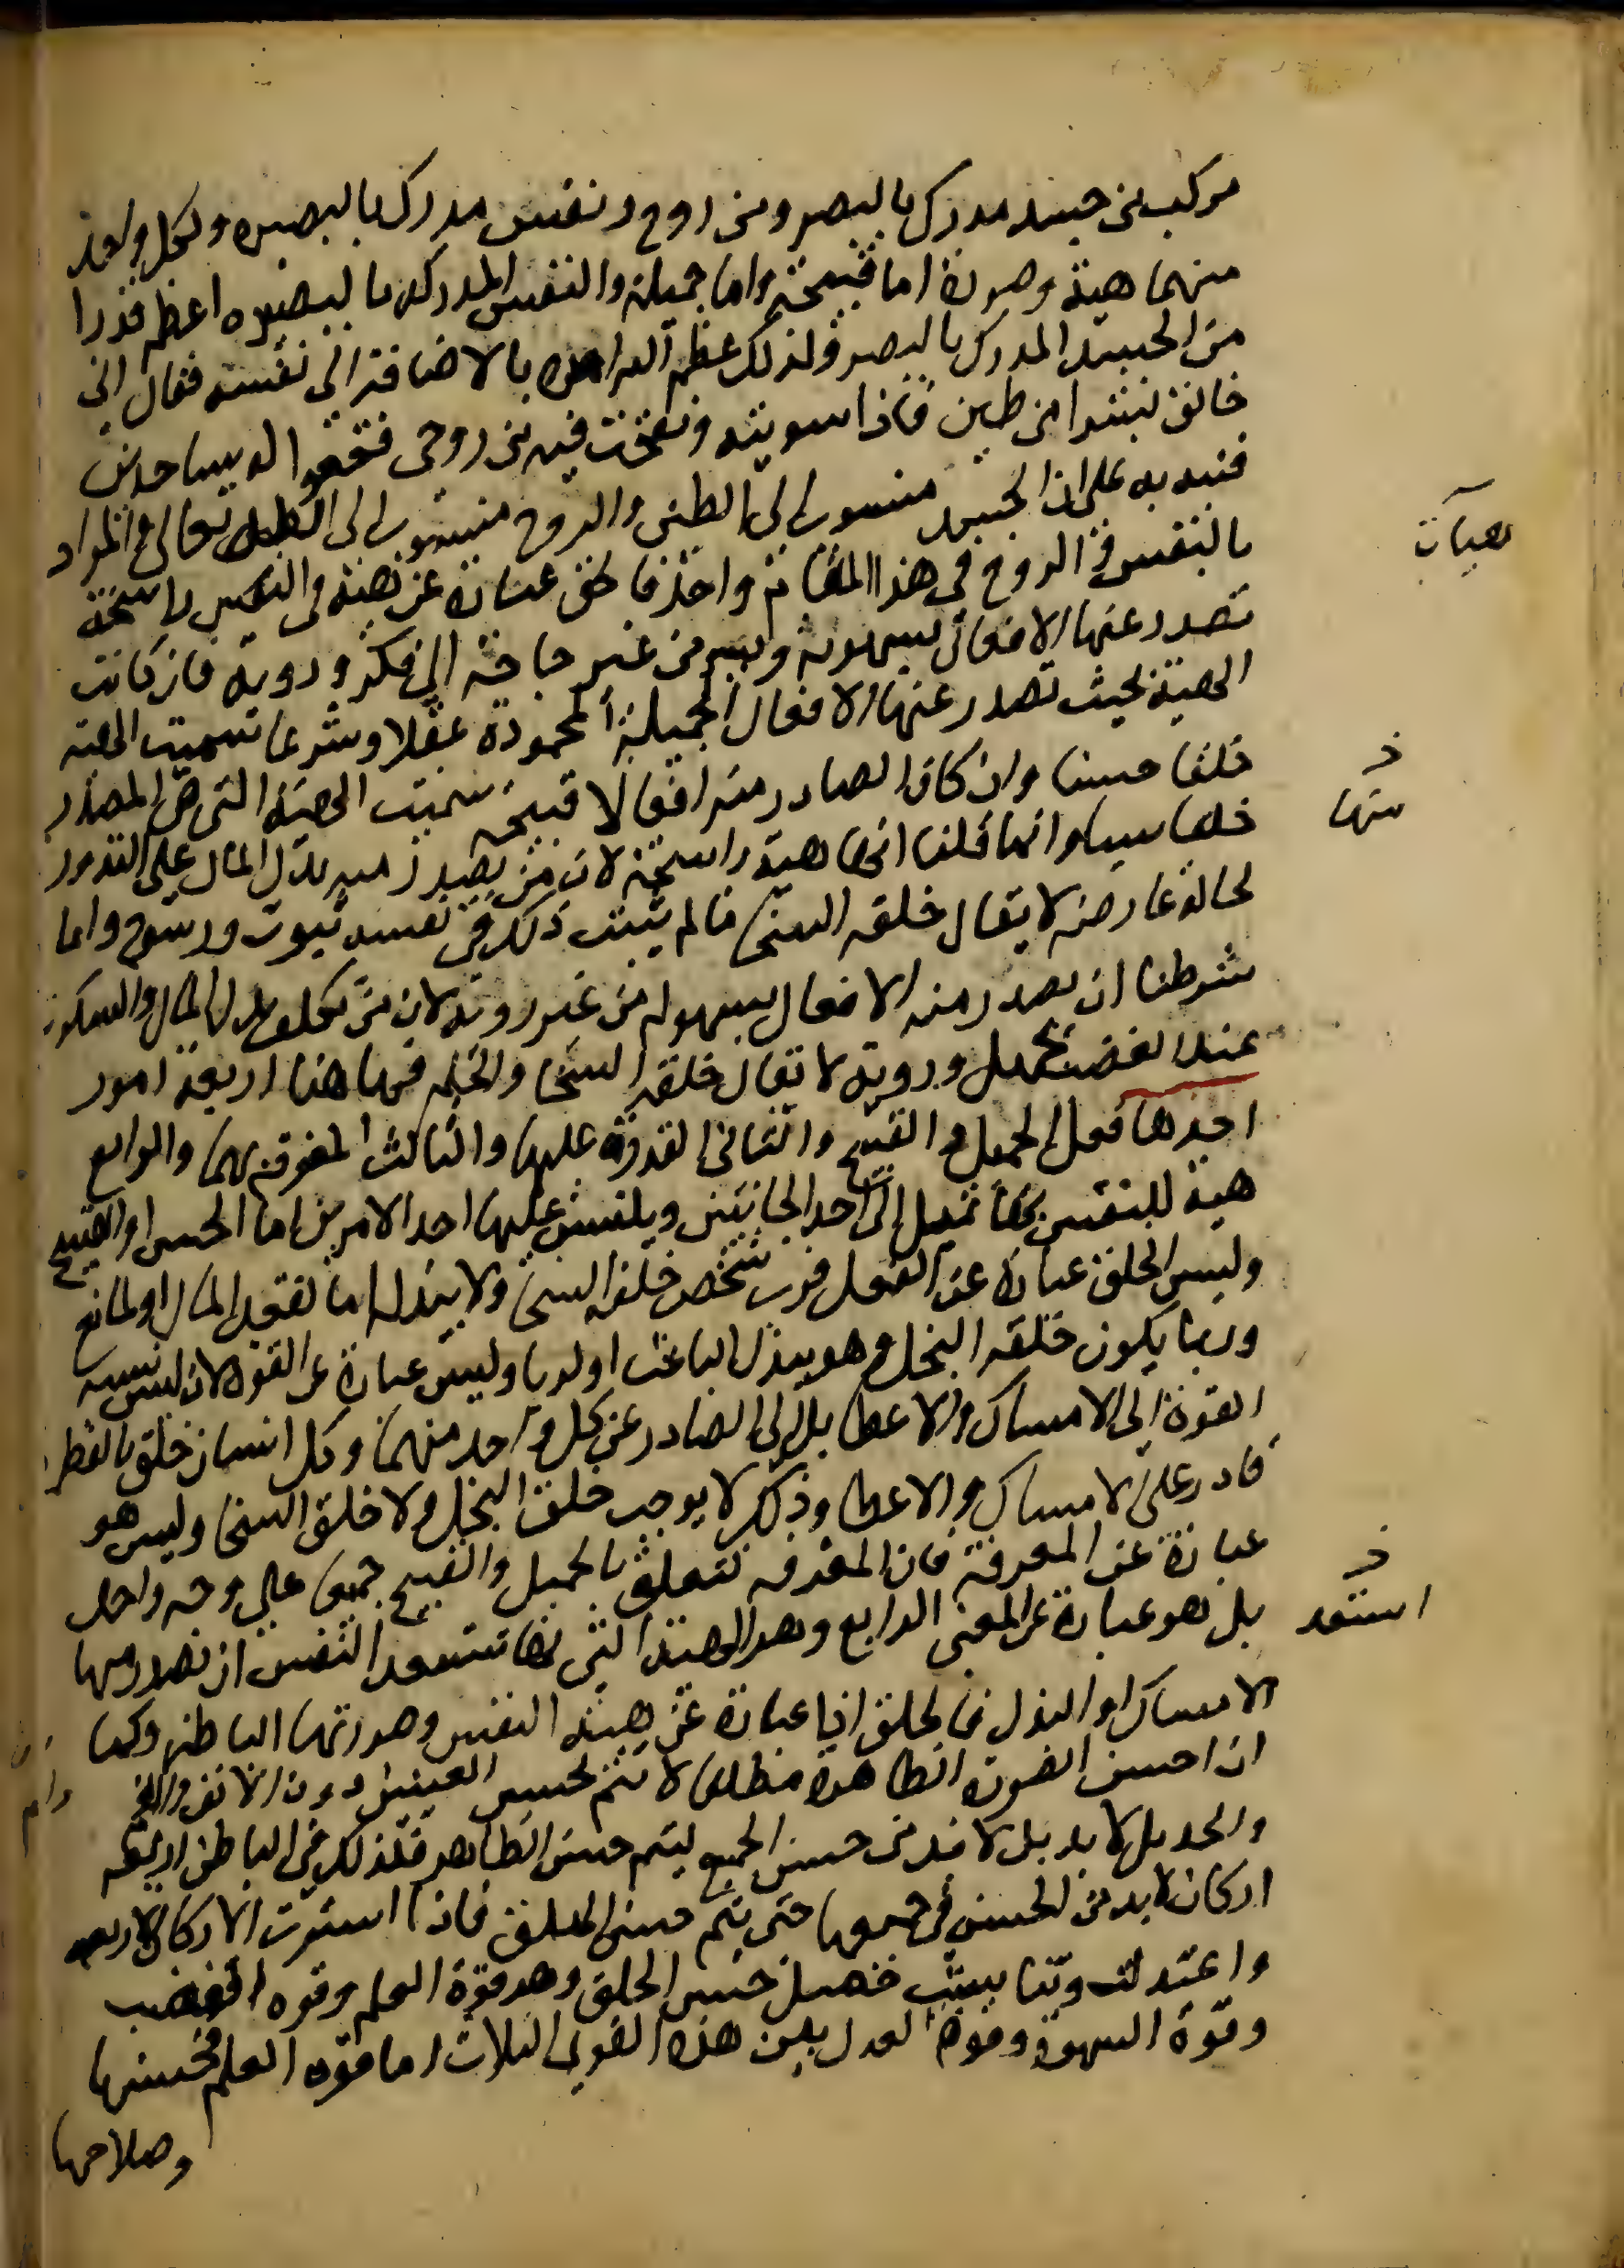 مركب من جسد مدرك بالبصر ومن روح ونفس مدرك بالبصيره ولكل واحد
منهما هيئة وصورة اما قبيحة واما جميلة والنفس المدركه بالبصيره اعظم قدرا
من الجسد المدرك بالبصر ولذلك عظم الله امره بالاضافة الى نفسه فقال اني
خالق بشرا من طين فاذا سويته ونفخت فيه من روحي فقعوا له ساجدين
فنبه به على ان الجسد منسوب الى الطين والروح منسوب الى الله تعالى والمراد
بالنفس والروح في هذا المقام واحد فالخلق عبارة عن هيئة في النفس راسخة
تصدر عنها الافعال بسهولة ويسر من غير حاجة الى فكر وروية فان كانت
الهيئة بحيث تصدر عنها الافعال الجميلة المحمودة عقلا وشرعا سميت الهيئة
خلقا حسنا وان كان الصادر منه افعالا قبيحة سميت الهيئة التي هي المصدر
خلقا سيئا وانما قلنا انها هيئة راسخة لان من يصدر منه بذل المال على الندور
لحالة عارضة لا يقال خلقه السخا ما لم يثبت ذلك في نفسه ثبوت ورسوخ وانما
شرطنا ان تصدر منه الافعال بسهولة من غير روية لان من تكلف بذل المال والسكوت
عند الغضب بجهد وروية لا يقال خلقه السخا والحلم فها هنا اربعة امور
احدها فعل الجميل والقبيح والثاني القدرة عليهما والثالث المعرفة بهما والرابع
هيئة للنفس بها تميل الى احد الجانبين ويتيسر عليها احد الامرين اما الحسن او القبيح
وليس الخلق عبارة عن الفعل فرب شخص خلقه السخا ولا يبذل اما لفقد المال او لمانع
وربما يكون خلقه البخل وهو يبذل لباعث او لريا وليس عبارة عن القوة لان نسبه
القوة الى الامساك والاعطا بل الى الصادر عن كل واحد منهما وكل انسان خلق بالفطر
قادر على الامساك والاعطا وذلك لا يوجب خلق البخل ولا خلق السخا وليس هو
عبارة عن المعرفة فان المعرفه تتعلق بالجميل والقبيح جميعا على وجه واحد
بل هو عبارة عن المعنى الرابع وهو الهيئة التي بها تستعد النفس ان تصدر منها
الامساك او البذل فالخلق اذا عبارة عن هيئة النفس وصورتها الباطنه وكما
ان احسن الصورة الظاهرة مطلقا لا تتم بحسن العينين دون الانف والفم
والخد بل لا بد بل لا بد من حسن الجميع ليتم حسن الظاهر فكذلك في الباطن اربعه
اركان لا بد من الحسن في جميعها حتى يتم حسن الخلق فاذا استوت الاركان الاربعه
واعتدلت وتناسبت حصل حسن الخلق وهو قوة العلم وقوه الغضب
وقوة الشهوة وقوة العدل بين هذه القوى الثلاث اما قوه العلم فحسنها
وصلاحها
هيئات
خ
منها
خ
استعد